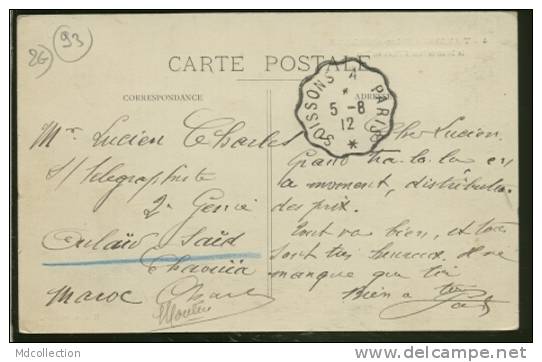 26
93
CARTE POSTALE
CORRESPONDANCE
ADRESSE
SOISSONS A PARIS
5-8
12
Mr Lucien Charles
S/Telegraphiste
2e Genie
Oulaïd Saïd
Chaouïa
Maroc
Cher Lucien.
Grand tra-la-la en
ce moment, distribution
des prix.
Tout va bien, et tous
sont très heureux. Il ne
manque que toi
Bien a toi
Mdcollection
http://www.delcampe.net